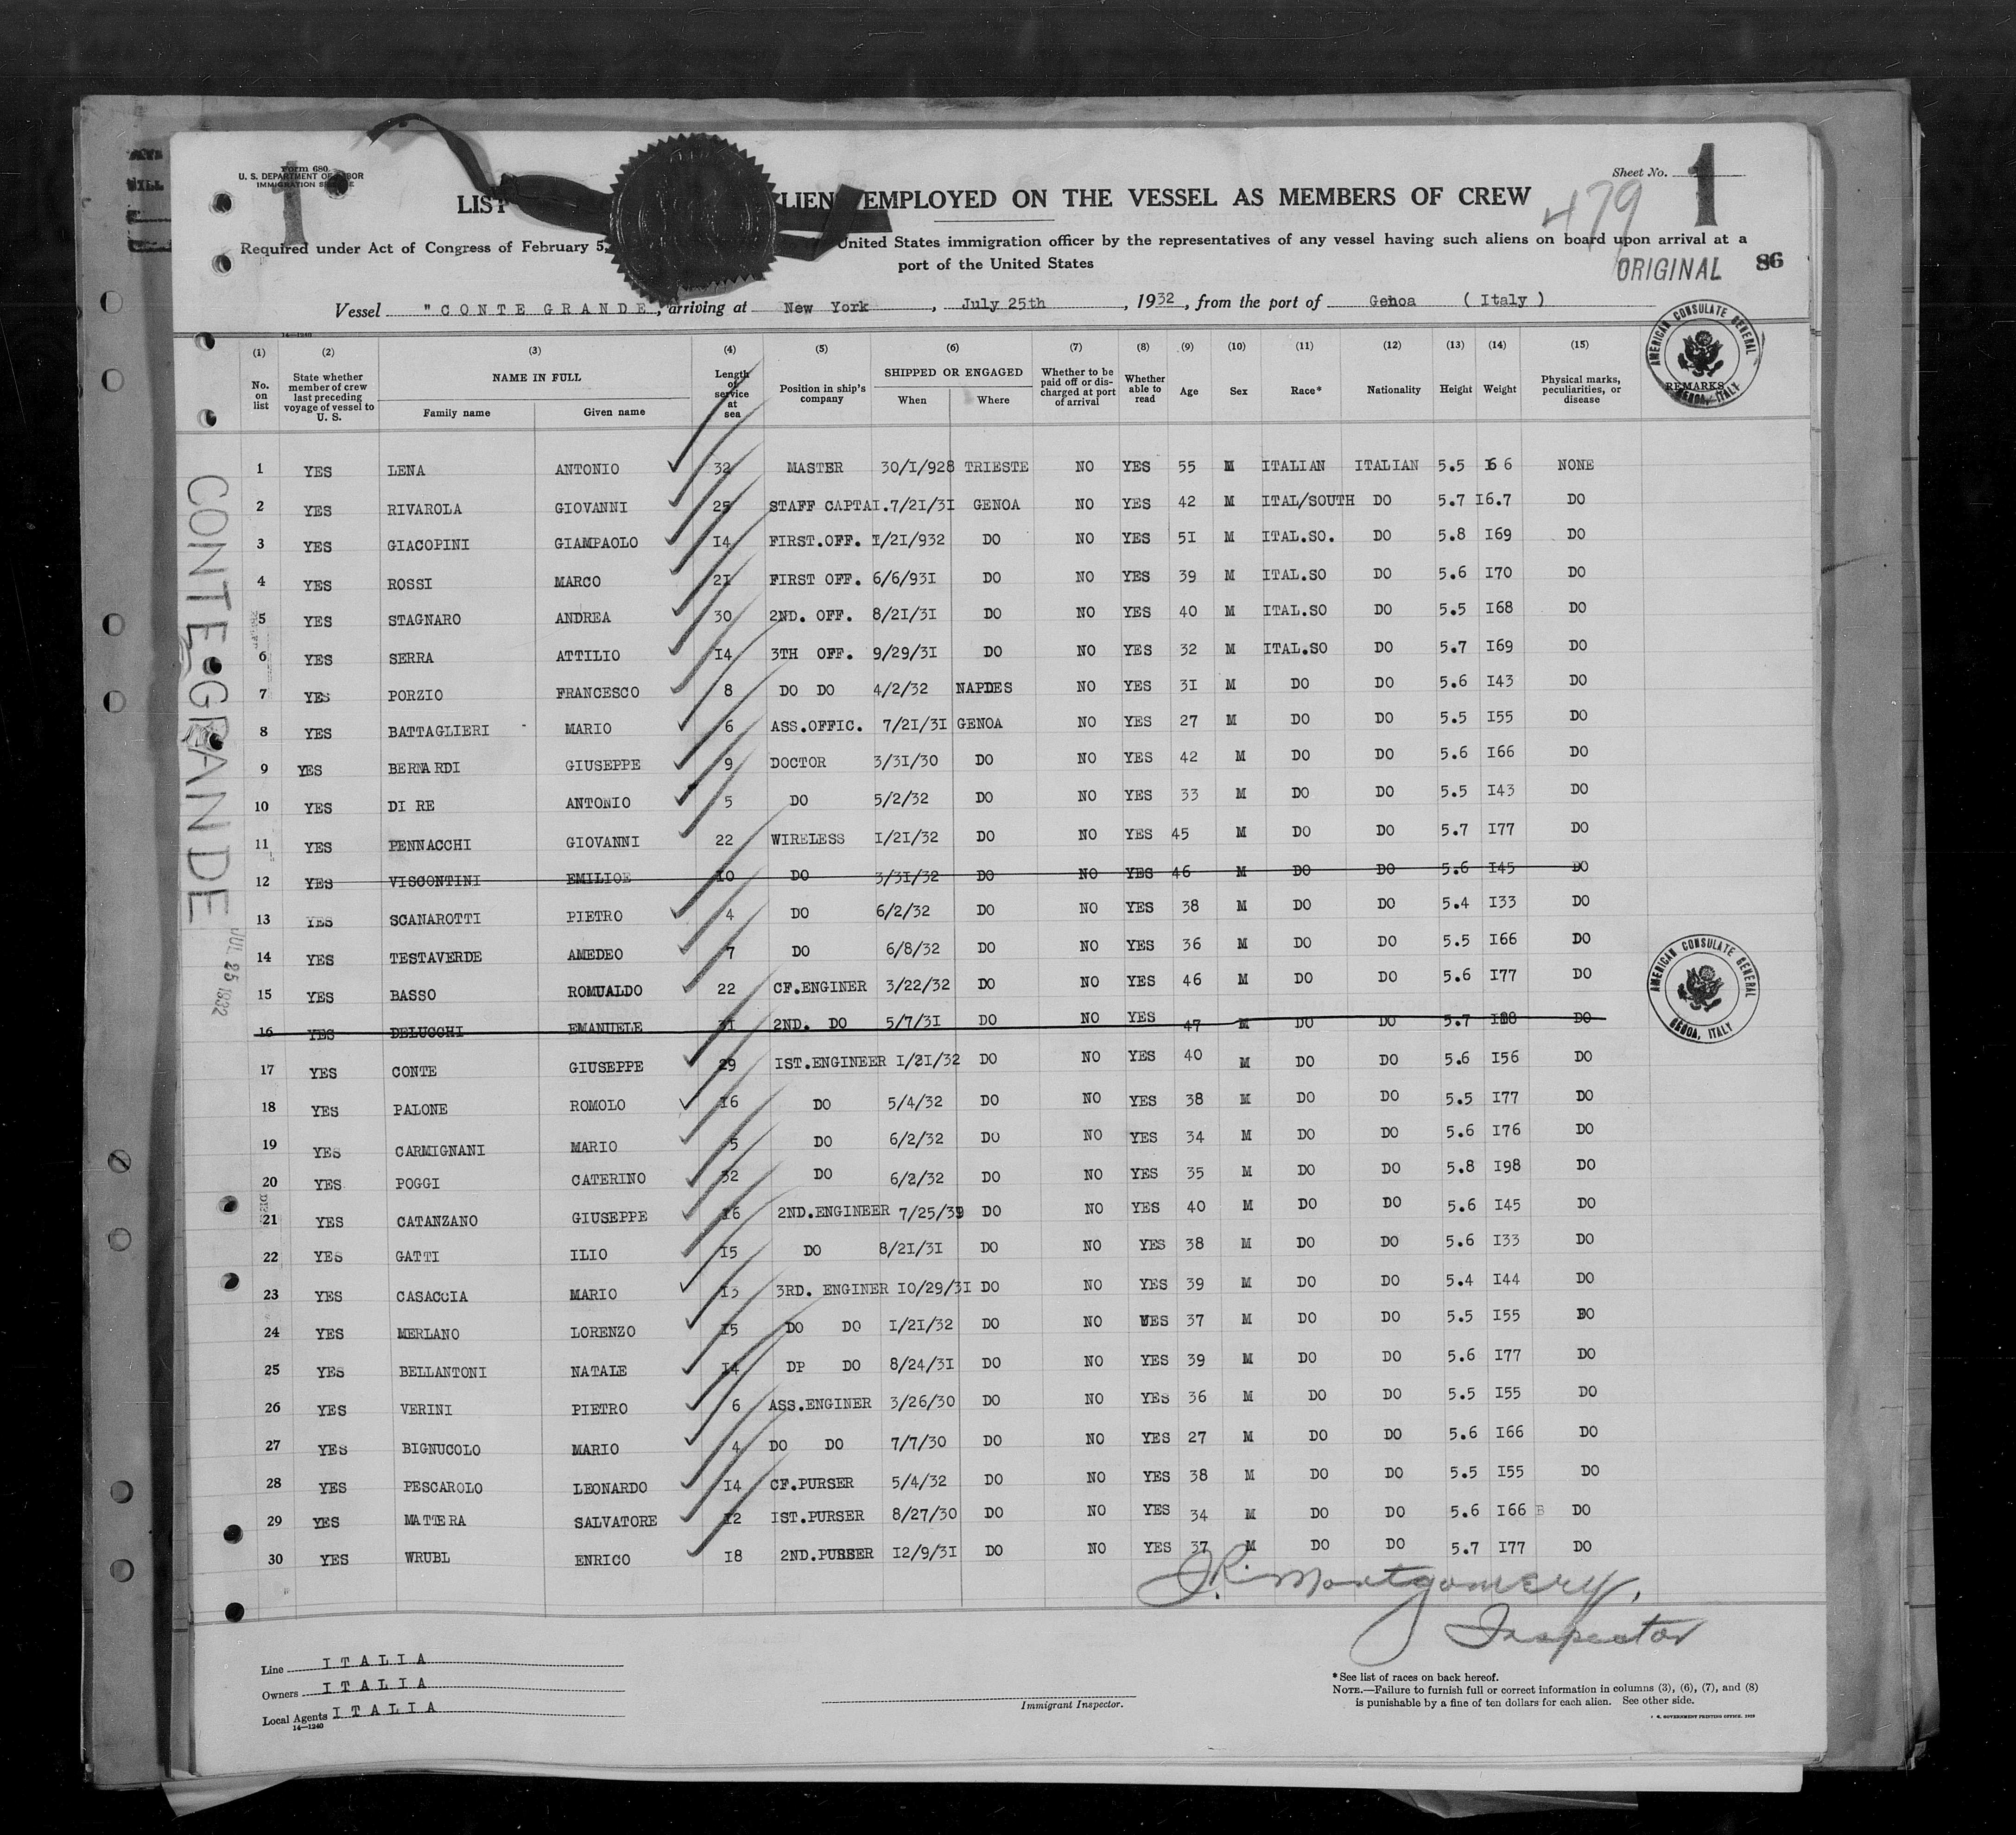 1
Form 680
U. S. DEPARTMENT OF LABOR
IMMIGRATION SERVICE
Sheet No. 1
LIST ALIENS EMPLOYED ON THE VESSEL AS MEMBERS OF CREW
479
Required under Act of Congress of February 5, United States immigration officer by the representatives of any vessel having such aliens on board upon arrival at a
port of the United States
ORIGINAL 86
Vessel "CONTE GRANDE, arriving at New York, July 25th, 1932, from the port of Genoa (Italy)
14—1240
(1) (2) (3) (4) (5) (6) (7) (8) (9) (10) (11) (12) (13) (14) (15)
No. on list State whether member of crew last preceding voyage of vessel to U. S. NAME IN FULL Family name Given name Length of service at sea Position in ship's company SHIPPED OR ENGAGED When Where Whether to be paid off or discharged at port of arrival Whether able to read Age Sex Race* Nationality Height Weight Physical marks, peculiarities, or disease REMARKS
AMERICAN CONSULATE GENERAL
GENOA, ITALY
1 YES LENA ANTONIO 32 MASTER 30/I/928 TRIESTE NO YES 55 M ITALIAN ITALIAN 5.5 I66 NONE
2 YES RIVAROLA GIOVANNI 25 STAFF CAPTAI.7/21/3I GENOA NO YES 42 M ITAL/SOUTH DO 5.7 I6.7 DO
3 YES GIACOPINI GIAMPAOLO I4 FIRST.OFF. I/21/932 DO NO YES 5I M ITAL.SO. DO 5.8 I69 DO
4 YES ROSSI MARCO 2I FIRST OFF. 6/6/93I DO NO YES 39 M ITAL.SO DO 5.6 I70 DO
5 YES STAGNARO ANDREA 30 2ND. OFF. 8/21/3I DO NO YES 40 M ITAL.SO DO 5.5 I68 DO
6 YES SERRA ATTILIO I4 3TH OFF. 9/29/3I DO NO YES 32 M ITAL.SO DO 5.7 I69 DO
7 YES PORZIO FRANCESCO 8 DO DO 4/2/32 NAPLES NO YES 3I M DO DO 5.6 I43 DO
8 YES BATTAGLIERI MARIO 6 ASS.OFFIC. 7/21/3I GENOA NO YES 27 M DO DO 5.5 I55 DO
9 YES BERNARDI GIUSEPPE 9 DOCTOR 3/31/30 DO NO YES 42 M DO DO 5.6 I66 DO
10 YES DI RE ANTONIO 5 DO 5/2/32 DO NO YES 33 M DO DO 5.5 I43 DO
11 YES PENNACCHI GIOVANNI 22 WIRELESS I/21/32 DO NO YES 45 M DO DO 5.7 I77 DO
12 YES VISCONTINI EMILIOE I0 DO 3/31/32 DO NO YES 46 M DO DO 5.6 I45 DO
13 YES SCANAROTTI PIETRO 4 DO 6/2/32 DO NO YES 38 M DO DO 5.4 I33 DO
14 YES TESTAVERDE AMEDEO 7 DO 6/8/32 DO NO YES 36 M DO DO 5.5 I66 DO
15 YES BASSO ROMUALDO 22 CF.ENGINER 3/22/32 DO NO YES 46 M DO DO 5.6 I77 DO
16 YES DELUCCHI EMANUELE 3I 2ND. DO 5/7/3I DO NO YES 47 M DO DO 5.7 DO
17 YES CONTE GIUSEPPE 29 IST.ENGINEER I/21/32 DO NO YES 40 M DO DO 5.6 I56 DO
18 YES PALONE ROMOLO I6 DO 5/4/32 DO NO YES 38 M DO DO 5.5 I77 DO
19 YES CARMIGNANI MARIO 5 DO 6/2/32 DO NO YES 34 M DO DO 5.6 I76 DO
20 YES POGGI CATERINO 32 DO 6/2/32 DO NO YES 35 M DO DO 5.8 I98 DO
21 YES CATANZANO GIUSEPPE I6 2ND.ENGINEER DO NO YES 40 M DO DO 5.6 I45 DO
22 YES GATTI ILIO I5 DO 8/21/3I DO NO YES 38 M DO DO 5.6 I33 DO
23 YES CASACCIA MARIO I3 3RD. ENGINER I0/29/3I DO NO YES 39 M DO DO 5.4 I44 DO
24 YES MERLANO LORENZO I5 DO DO I/21/32 DO NO YES 37 M DO DO 5.5 I55 DO
25 YES BELLANTONI NATALE I4 DP DO 8/24/3I DO NO YES 39 M DO DO 5.6 I77 DO
26 YES VERINI PIETRO 6 ASS.ENGINER 3/26/30 DO NO YES 36 M DO DO 5.5 I55 DO
27 YES BIGNUCOLO MARIO 4 DO DO 7/7/30 DO NO YES 27 M DO DO 5.6 I66 DO
28 YES PESCAROLO LEONARDO I4 CF.PURSER 5/4/32 DO NO YES 38 M DO DO 5.5 I55 DO
29 YES MATTERA SALVATORE I2 IST.PURSER 8/27/30 DO NO YES 34 M DO DO 5.6 I66 DO
30 YES WRUBL ENRICO I8 2ND.PURSER I2/9/3I DO NO YES 37 M DO DO 5.7 I77 DO
CONTE GRANDE
JUL 25 1932
AMERICAN CONSULATE GENERAL
GENOA, ITALY
J.R. Montgomery,
Inspector
Line ITALIA
Owners ITALIA
Local Agents ITALIA
14—1240
Immigrant Inspector.
*See list of races on back hereof.
NOTE.—Failure to furnish full or correct information in columns (3), (6), (7), and (8)
is punishable by a fine of ten dollars for each alien. See other side.